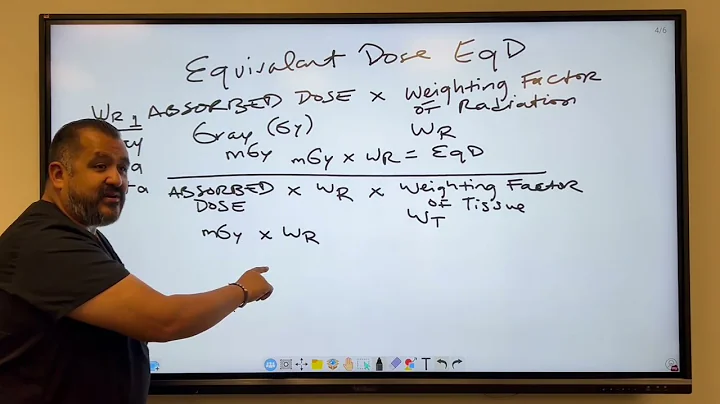 4/6
Equivalant Dose EqD
WR 1 ABSORBED DOSE x Weighting Factor
of Radiation
Gray (Gy)
WR
mGy mGy x WR = EqD
ABSORBED x WR x Weighting Factor
DOSE
of Tissue
WT
mGy x WR
T